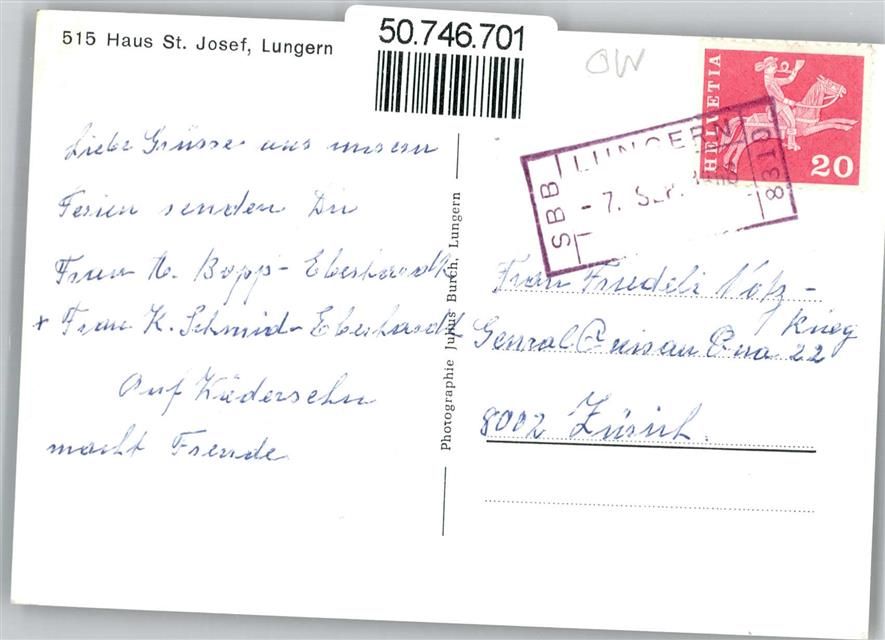 515 Haus St. Josef, Lungern
50.746.701
OW
HELVETIA
20
SBB LUNGERN
- 7. SEP.
8310
Liebe Grüsse aus unsern
Ferien senden Dir
Frau M. Bopp-Eberhardt
+ Frau K. Schmid-Eberhardt
Auf Wiedersehn
macht Freude
Photographie Julius Burch, Lungern
Frau Friedeli Notz-
Krieg
General Guisan Qua 22
8002 Zürich.